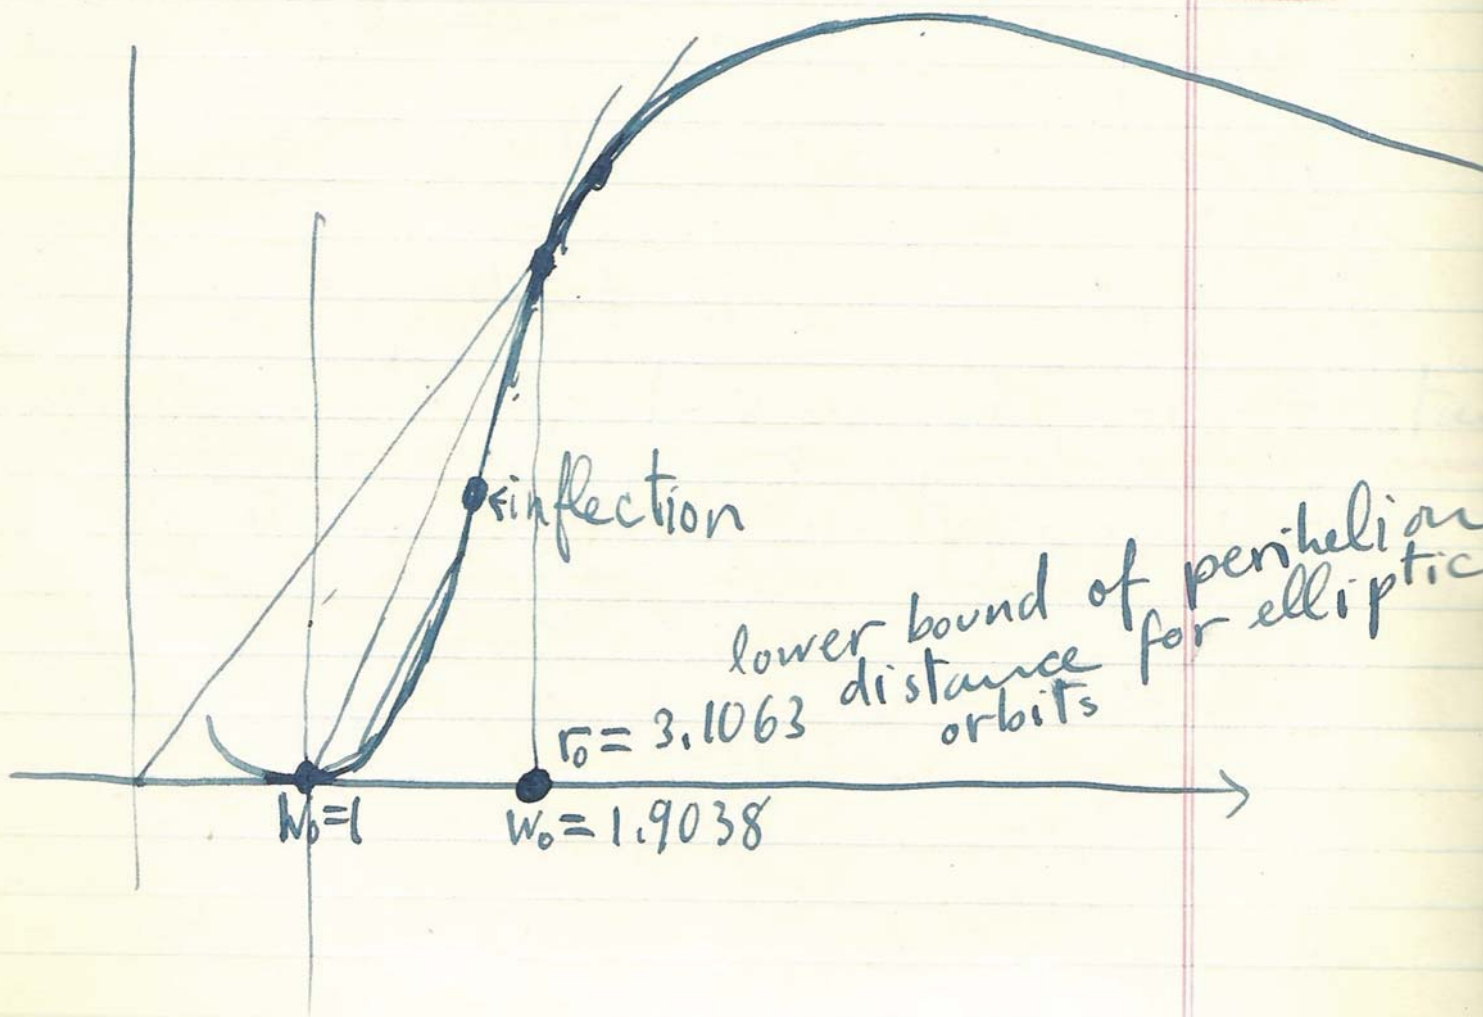 inflection
lower bound of perihelion
distance for elliptic
orbits
r₀ = 3.1063
W₀=1
W₀ = 1.9038